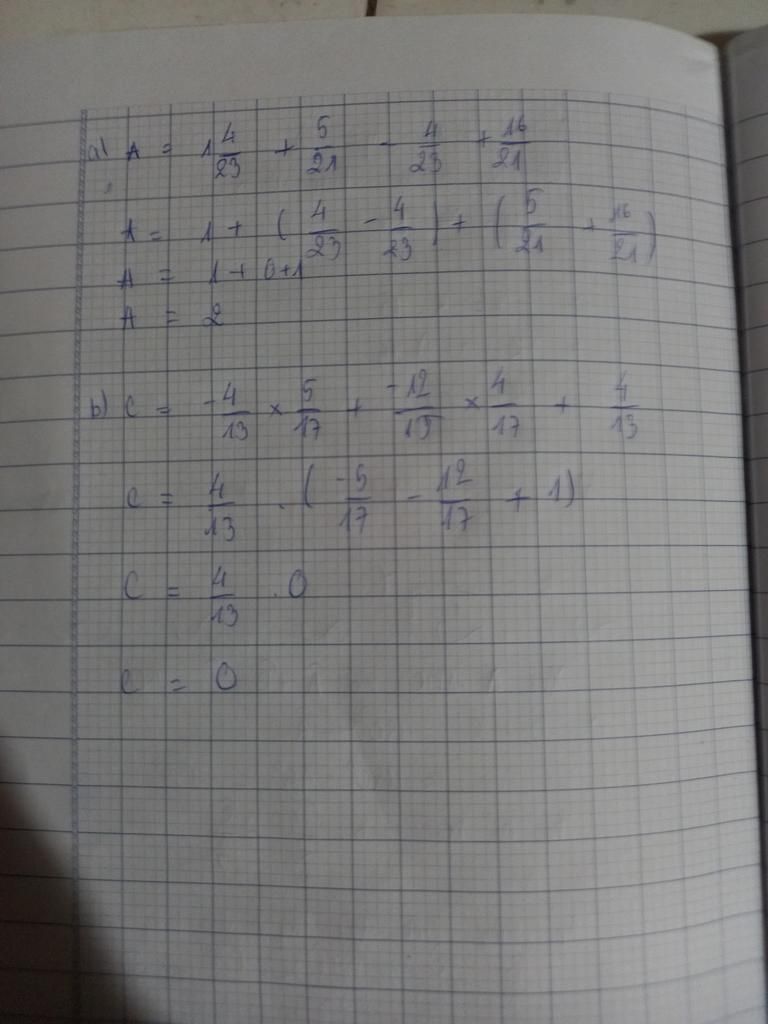 a) A = 1 4/23 + 5/21 - 4/23 + 16/21
A = 1 + ( 4/23 - 4/23 ) + ( 5/21 + 16/21 )
A = 1 + 0 + 1
A = 2
b) C = -4/13 × 5/17 + -12/13 × 4/17 + 4/13
C = 4/13 . ( -5/17 - 12/17 + 1 )
C = 4/13 . 0
C = 0